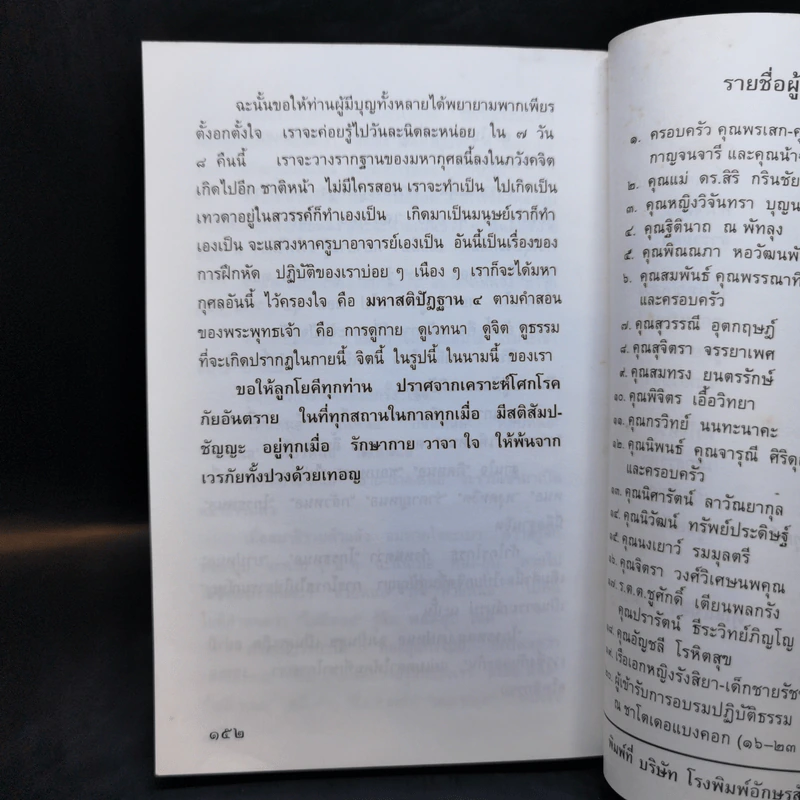 ฉะนั้นขอให้ท่านผู้มีบุญทั้งหลายได้พยายามพากเพียร
ตั้งอกตั้งใจ เราจะค่อยรู้ไปวันละนิดละหน่อย ใน ๗ วัน
๘ คืนนี้ เราจะวางรากฐานของมหากุศลนี้ลงในภวังคจิต
เกิดไปอีก ชาติหน้า ไม่มีใครสอน เราจะทำเป็น ไปเกิดเป็น
เทวดาอยู่ในสวรรค์ก็ทำเองเป็น เกิดมาเป็นมนุษย์เราก็ทำ
เองเป็น จะแสวงหาครูบาอาจารย์เองเป็น อันนี้เป็นเรื่องของ
การฝึกหัด ปฏิบัติของเราบ่อย ๆ เนือง ๆ เราก็จะได้มหา
กุศลอันนี้ ไว้ครองใจ คือ มหาสติปัฏฐาน ๔ ตามคำสอน
ของพระพุทธเจ้า คือ การดูกาย ดูเวทนา ดูจิต ดูธรรม
ที่จะเกิดปรากฏในกายนี้ จิตนี้ ในรูปนี้ ในนามนี้ ของเรา
ขอให้ลูกโยคีทุกท่าน ปราศจากเคราะห์โศกโรค
ภัยอันตราย ในที่ทุกสถานในกาลทุกเมื่อ มีสติสัมป-
ชัญญะ อยู่ทุกเมื่อ รักษากาย วาจา ใจ ให้พ้นจาก
เวรภัยทั้งปวงด้วยเทอญ
๑๕๒
รายชื่อผู้
๑. ครอบครัว คุณพรเสก-
กาญจนจารี และคุณน้า
๒. คุณแม่ ดร.สิริ กรินชัย
๓. คุณหญิงวิจันทรา บุญน
๔. คุณฐิตินาถ ณ พัทลุง
๕. คุณพิณณภา หอวัฒนพั
๖. คุณสมพันธ์ คุณพรรณาที
และครอบครัว
๗. คุณสุวรรณี อุตกฤษฎ์
๘. คุณสุจิตรา จรรยาเพศ
๙. คุณสมทรง ยนตรรักษ์
๑๐. คุณพิจิตร เอื้อวิทยา
๑๑. คุณกรวิทย์ นนทะนาคะ
๑๒. คุณนิพนธ์ คุณจารุณี ศิริดุ
และครอบครัว
๑๓. คุณนิศารัตน์ ลาวัณยากุล
๑๔. คุณนิวัฒน์ ทรัพย์ประดิษฐ์
๑๕. คุณนงเยาว์ รมมุลตรี
๑๖. คุณจิตรา วงศ์วิเศษนพคุณ
๑๗. ร.ต.ต.ชูศักดิ์ เตียนพลกรัง
คุณปรารัตน์ ธีระวิทย์ภิญโญ
๑๘. คุณอัญชลี โรหิตสุข
๑๙. เรือเอกหญิงรังสิยา-เด็กชายรัช
๒๐. ผู้เข้ารับการอบรมปฏิบัติธรรม
ณ ชาโตเดอแบงคอก (๑๖-๒๓
พิมพ์ที่ บริษัท โรงพิมพ์อักษร